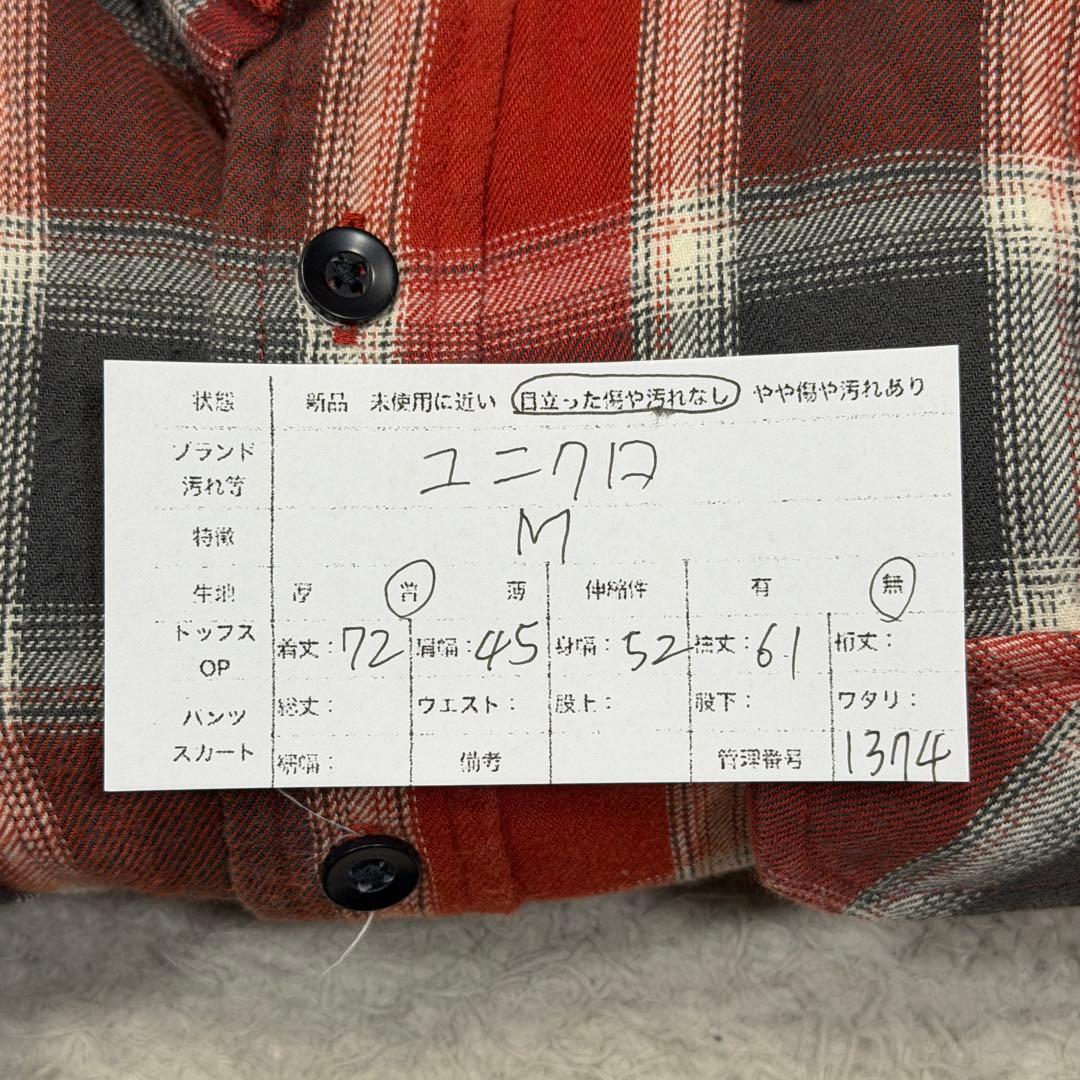 状態 新品 未使用に近い 目立った傷や汚れなし やや傷や汚れあり
ブランド
汚れ等
ユニクロ
特徴 M
生地 厚 普 薄 伸縮性 有 無
トップス
OP
着丈：72 肩幅：45 身幅：52 袖丈：61 裄丈：
パンツ
スカート
総丈： ウエスト： 股上： 股下： ワタリ：
裾幅： 備考 管理番号 1374